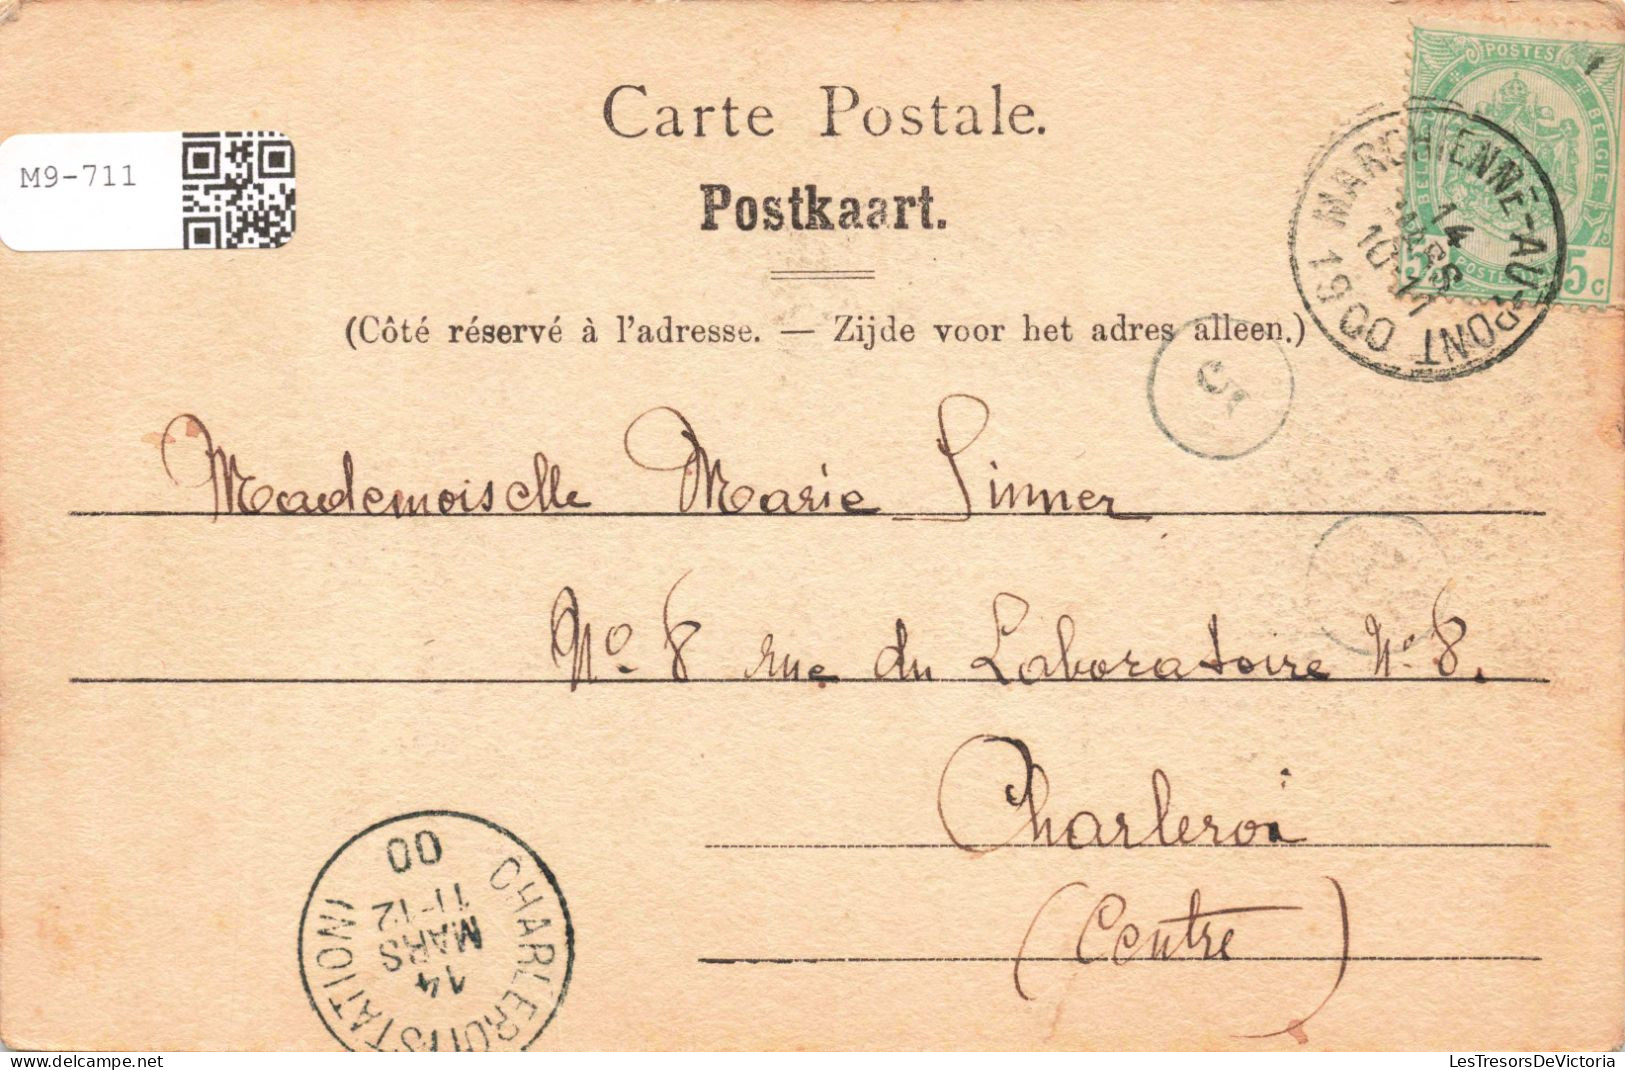 Carte Postale.
Postkaart.
M9-711
(Côté réservé à l'adresse. — Zijde voor het adres alleen.)
POSTES
BELGIE
5 POSTE 5c
MARCHIENNE-AU-PONT
14
MARS
10-11
1900
Mademoiselle Marie Sinner
No. 8 rue du Laboratoire No. 8.
Charleroi
(Centre)
CHARLEROI (STATION)
14
MARS
11-12
00
Delcampe.net
LesTresorsDeVictoria